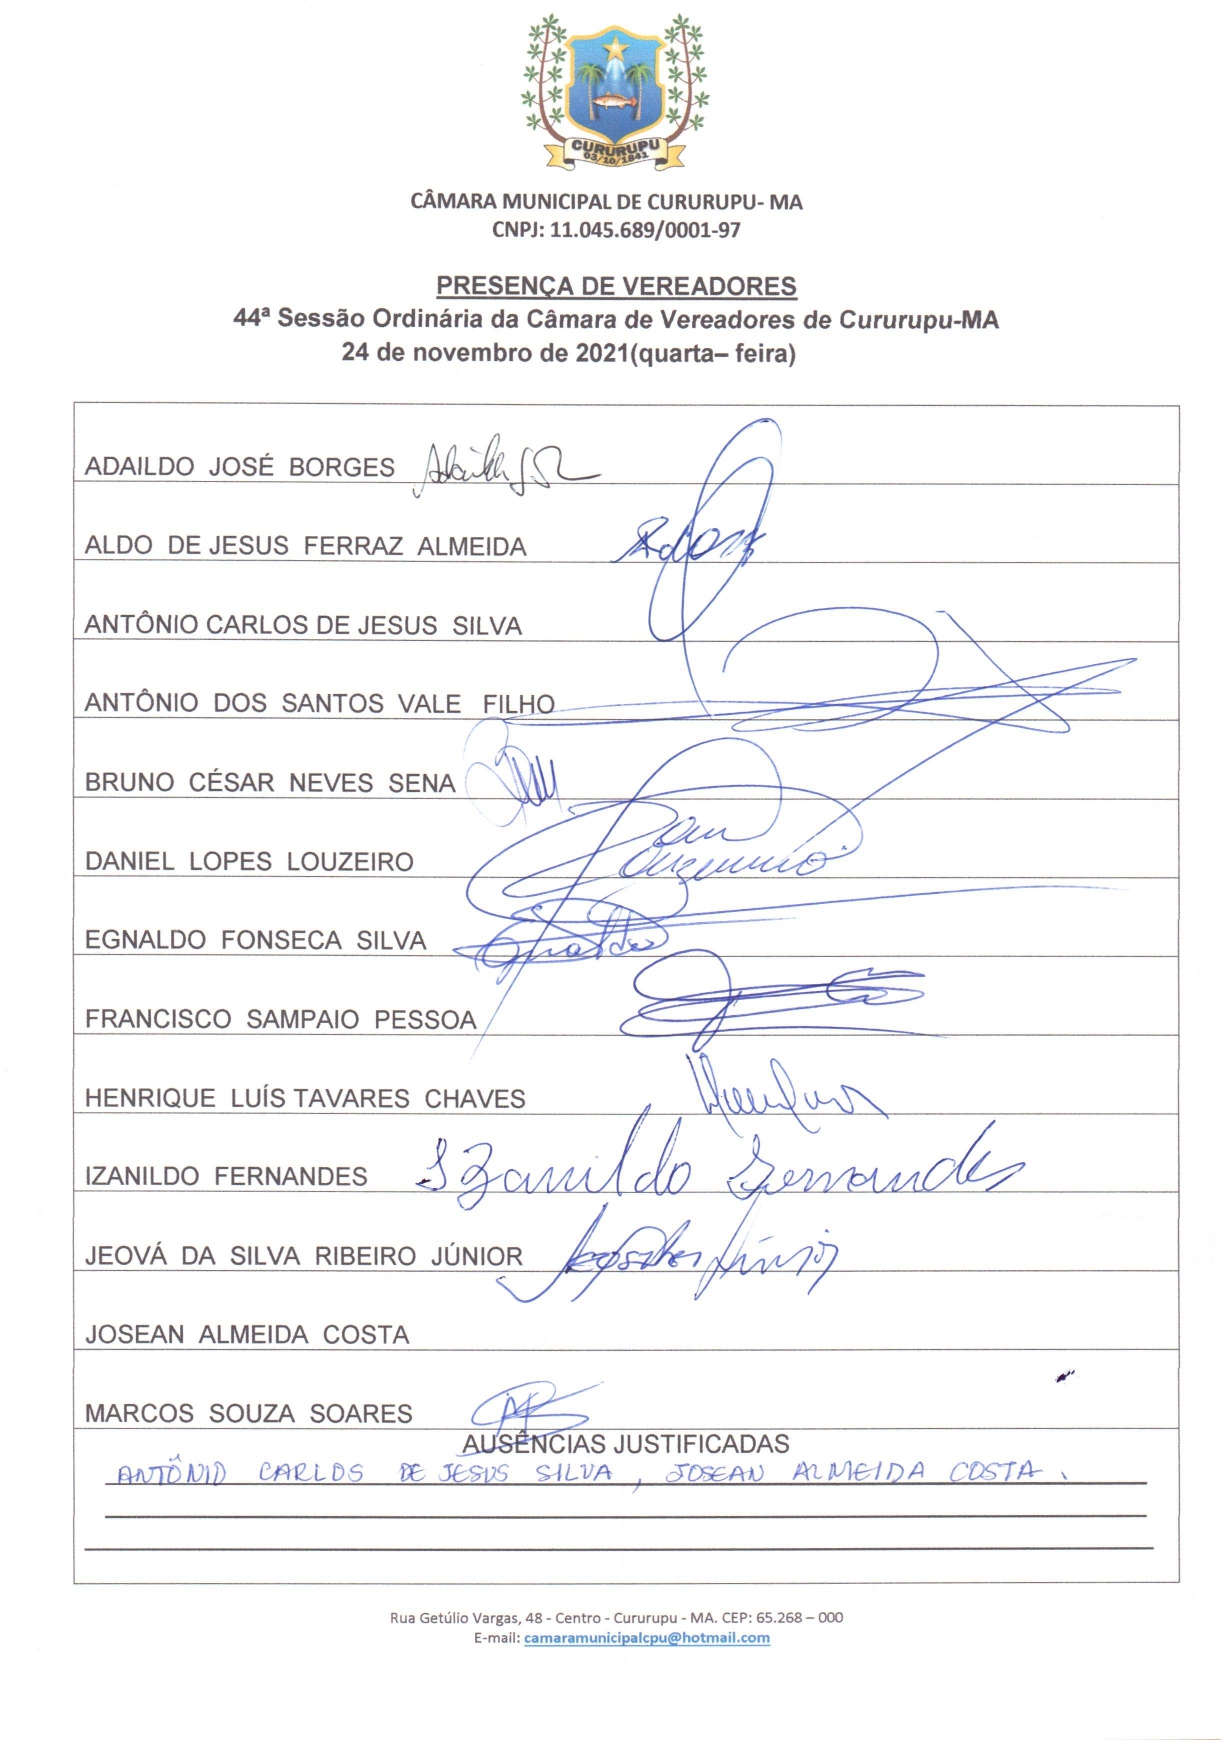 CURURUPU
03/10/1841
CÂMARA MUNICIPAL DE CURURUPU- MA
CNPJ: 11.045.689/0001-97
PRESENÇA DE VEREADORES
44ª Sessão Ordinária da Câmara de Vereadores de Cururupu-MA
24 de novembro de 2021(quarta– feira)
ADAILDO JOSÉ BORGES
ALDO DE JESUS FERRAZ ALMEIDA
ANTÔNIO CARLOS DE JESUS SILVA
ANTÔNIO DOS SANTOS VALE FILHO
BRUNO CÉSAR NEVES SENA
DANIEL LOPES LOUZEIRO
EGNALDO FONSECA SILVA
FRANCISCO SAMPAIO PESSOA
HENRIQUE LUÍS TAVARES CHAVES
IZANILDO FERNANDES Izanildo Fernandes
JEOVÁ DA SILVA RIBEIRO JÚNIOR
JOSEAN ALMEIDA COSTA
MARCOS SOUZA SOARES
AUSÊNCIAS JUSTIFICADAS
ANTÔNIO CARLOS DE JESUS SILVA, JOSEAN ALMEIDA COSTA.
Rua Getúlio Vargas, 48 - Centro - Cururupu - MA. CEP: 65.268 – 000
E-mail: camaramunicipalcpu@hotmail.com